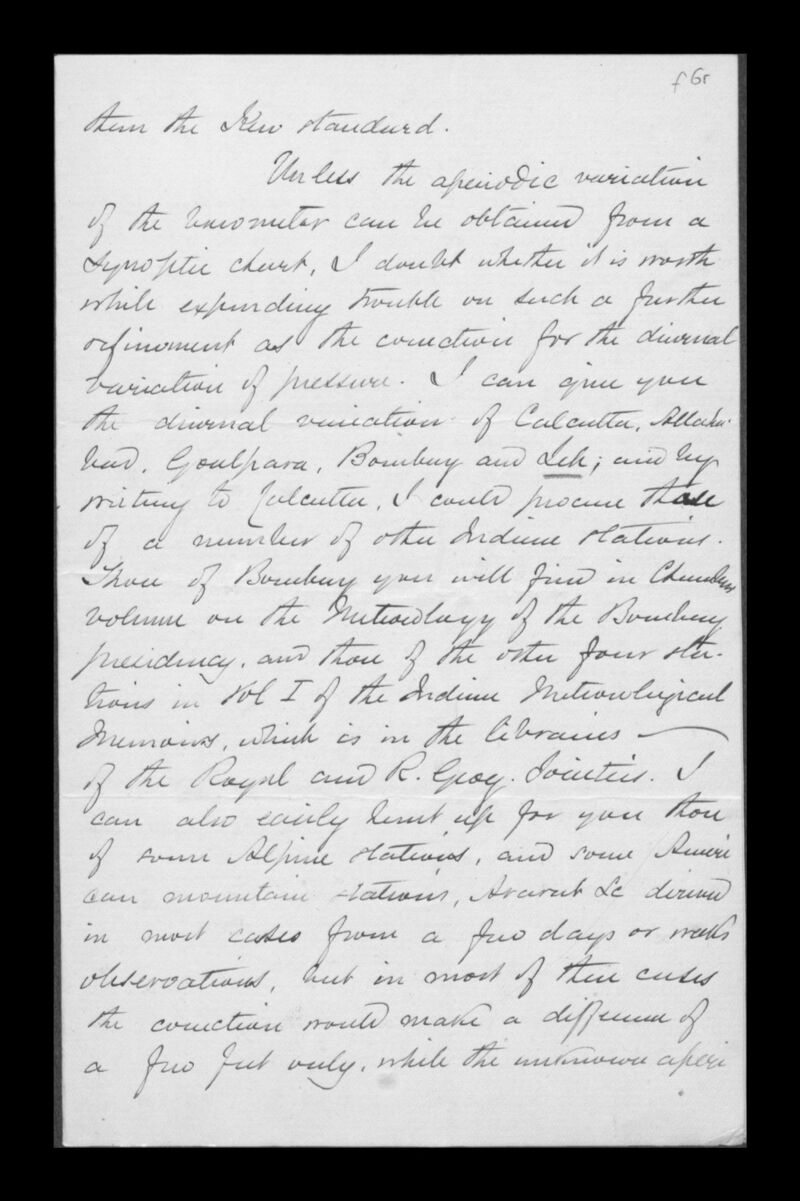 f 6r
them the Kew standard.
Unless the aperiodic variation
of the barometer can be obtained from a
synoptic chart, I doubt whether it is worth
while expending trouble on such a further
refinement as the correction for the diurnal
variation of pressure. I can give you
the diurnal variation of Calcutta, Allaha-
bad, Goalpara, Bombay and Leh; and by
writing to Calcutta, I could procure those
of a number of other Indian stations.
Those of Bombay you will find in Chambers
volume on the Meteorology of the Bombay
presidency, and those of the other four sta-
tions in Vol I of the Indian Meteorological
Memoirs, which is in the libraries
of the Royal and R. Geog. Societies. I
can also easily hunt up for you those
of some Alpine stations, and some Ameri
can mountain stations, Ararat &c derived
in most cases from a few days or weeks
observations, but in most of these cases
the correction would make a difference of
a few feet only, while the unknown aperi